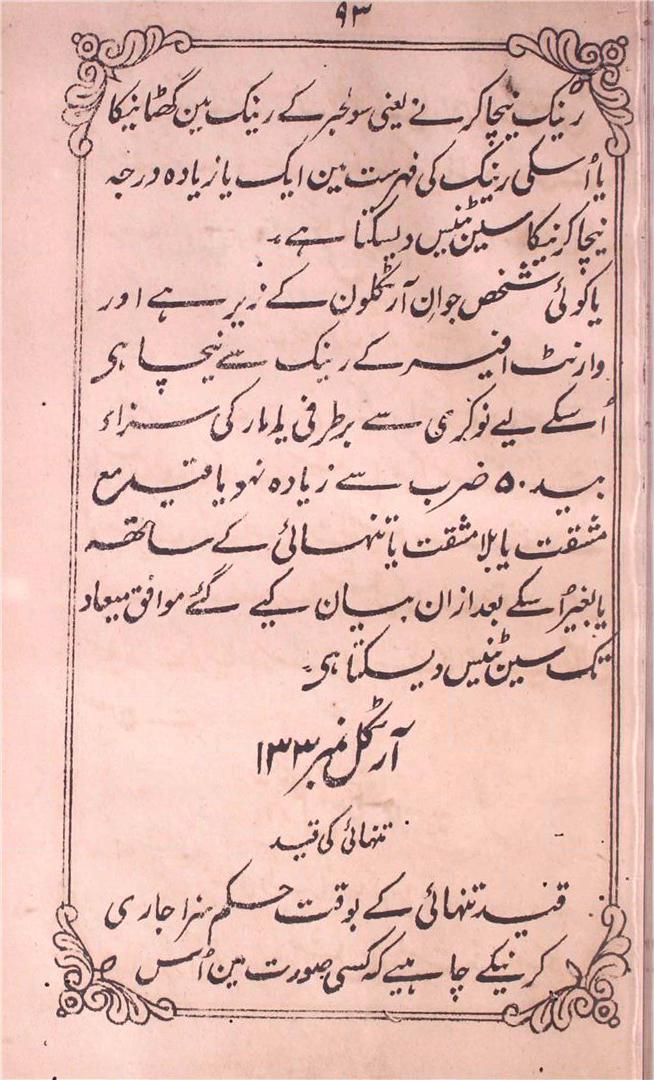 ۹۳
رینک نیچا کرنے یعنی سولجر کے رینک مین گھٹانیکا
یا اُسکی رینک کی فہرست مین ایک یا زیادہ درجہ
نیچا کرنیکا سین ٹنیس دیسکتا ہے۔
یا کوئی شخص جو اِن آرٹکلون کے زیر ہے اور
وارنٹ افیسر کے رینک سے نیچا ہی
اُسکے لیے نوکری سے برطرفی یا مار کی سزاء
بید ۵۰ ضرب سے زیادہ نہو یا قید مع
مشقت یا بلا مشقت یا تنہائی کے ساتھہ
یا بغیر اُسکے بعد ازان بیان کیے گئے موافق میعاد
تک سین ٹنیس دیسکتا ہی۔
آرٹکل نمبر ۱۳۳
تنہائی کی قید
قید تنہائی کے بوقت حکم سزا جاری
کرنیکے چاہیے کہ کسی صورت مین اُس